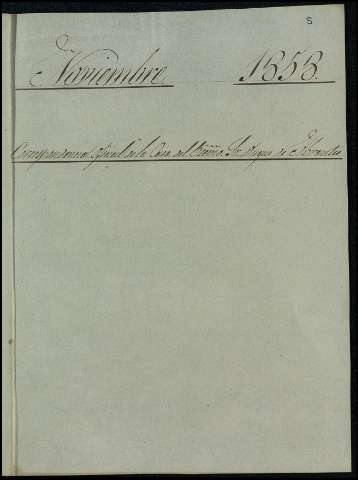 S
Noviembre 1858.
Correspondencia oficial de la Casa del Exmo. Sr. Duque de Abrantes